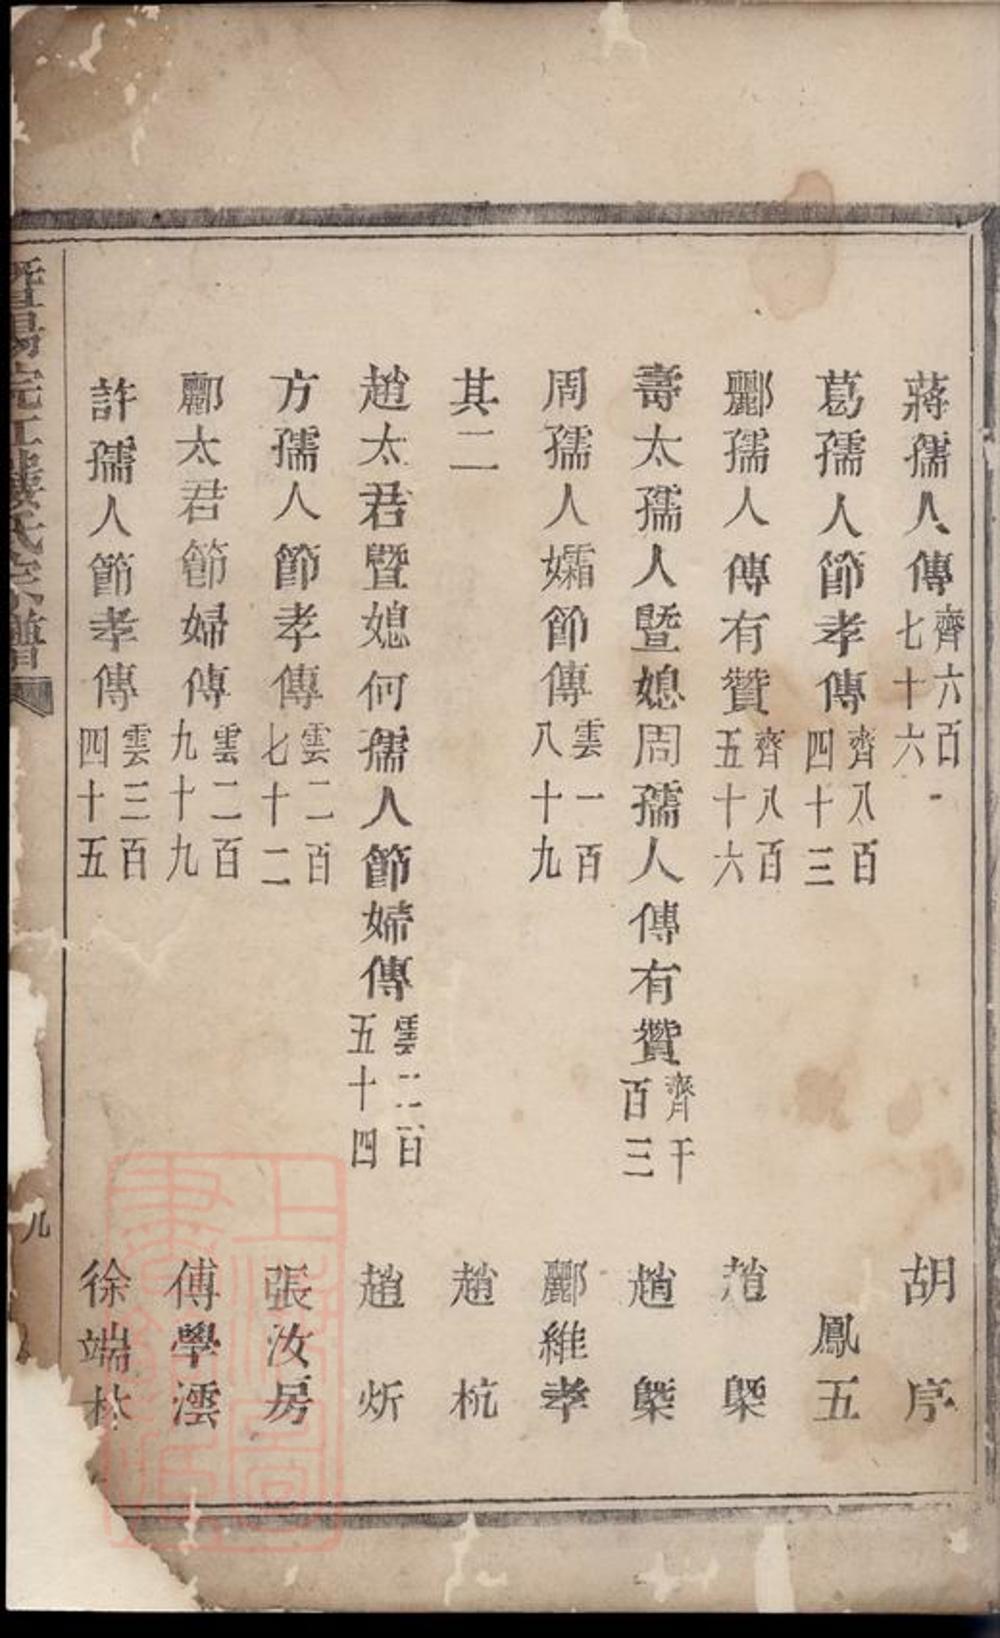 蔣孺人傳齊六百七十六 胡序
葛孺人節孝傳齊八百四十三 鳳五
酈孺人傳有贊齊八百五十六 趙槩
壽太孺人暨媳周孺人傳有贊齊千百三 趙槩
周孺人孀節傳雲一百八十九 酈維孝
其二 趙杭
趙太君暨媳何孺人節婦傳雲二百五十四 趙炘
方孺人節孝傳雲二百七十二 張汝房
酈太君節婦傳雲二百九十九 傅學澐
許孺人節孝傳雲三百四十五 徐端
暨陽浣江樓氏宗譜
九